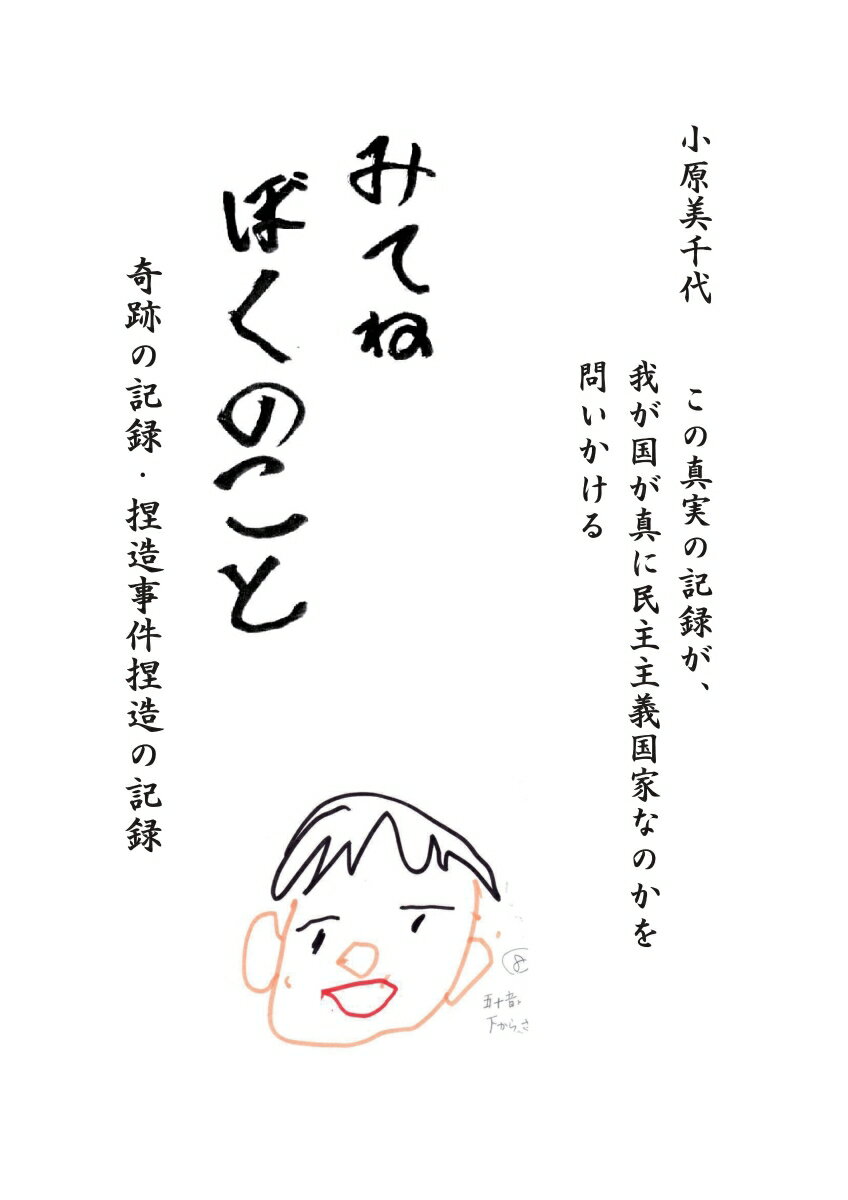 小原美千代
この真実の記録が、
我が国が真に民主主義国家なのかを
問いかける
みてね
ぼくのこと
奇跡の記録・捏造事件捏造の記録
8
五十音
下から、さ